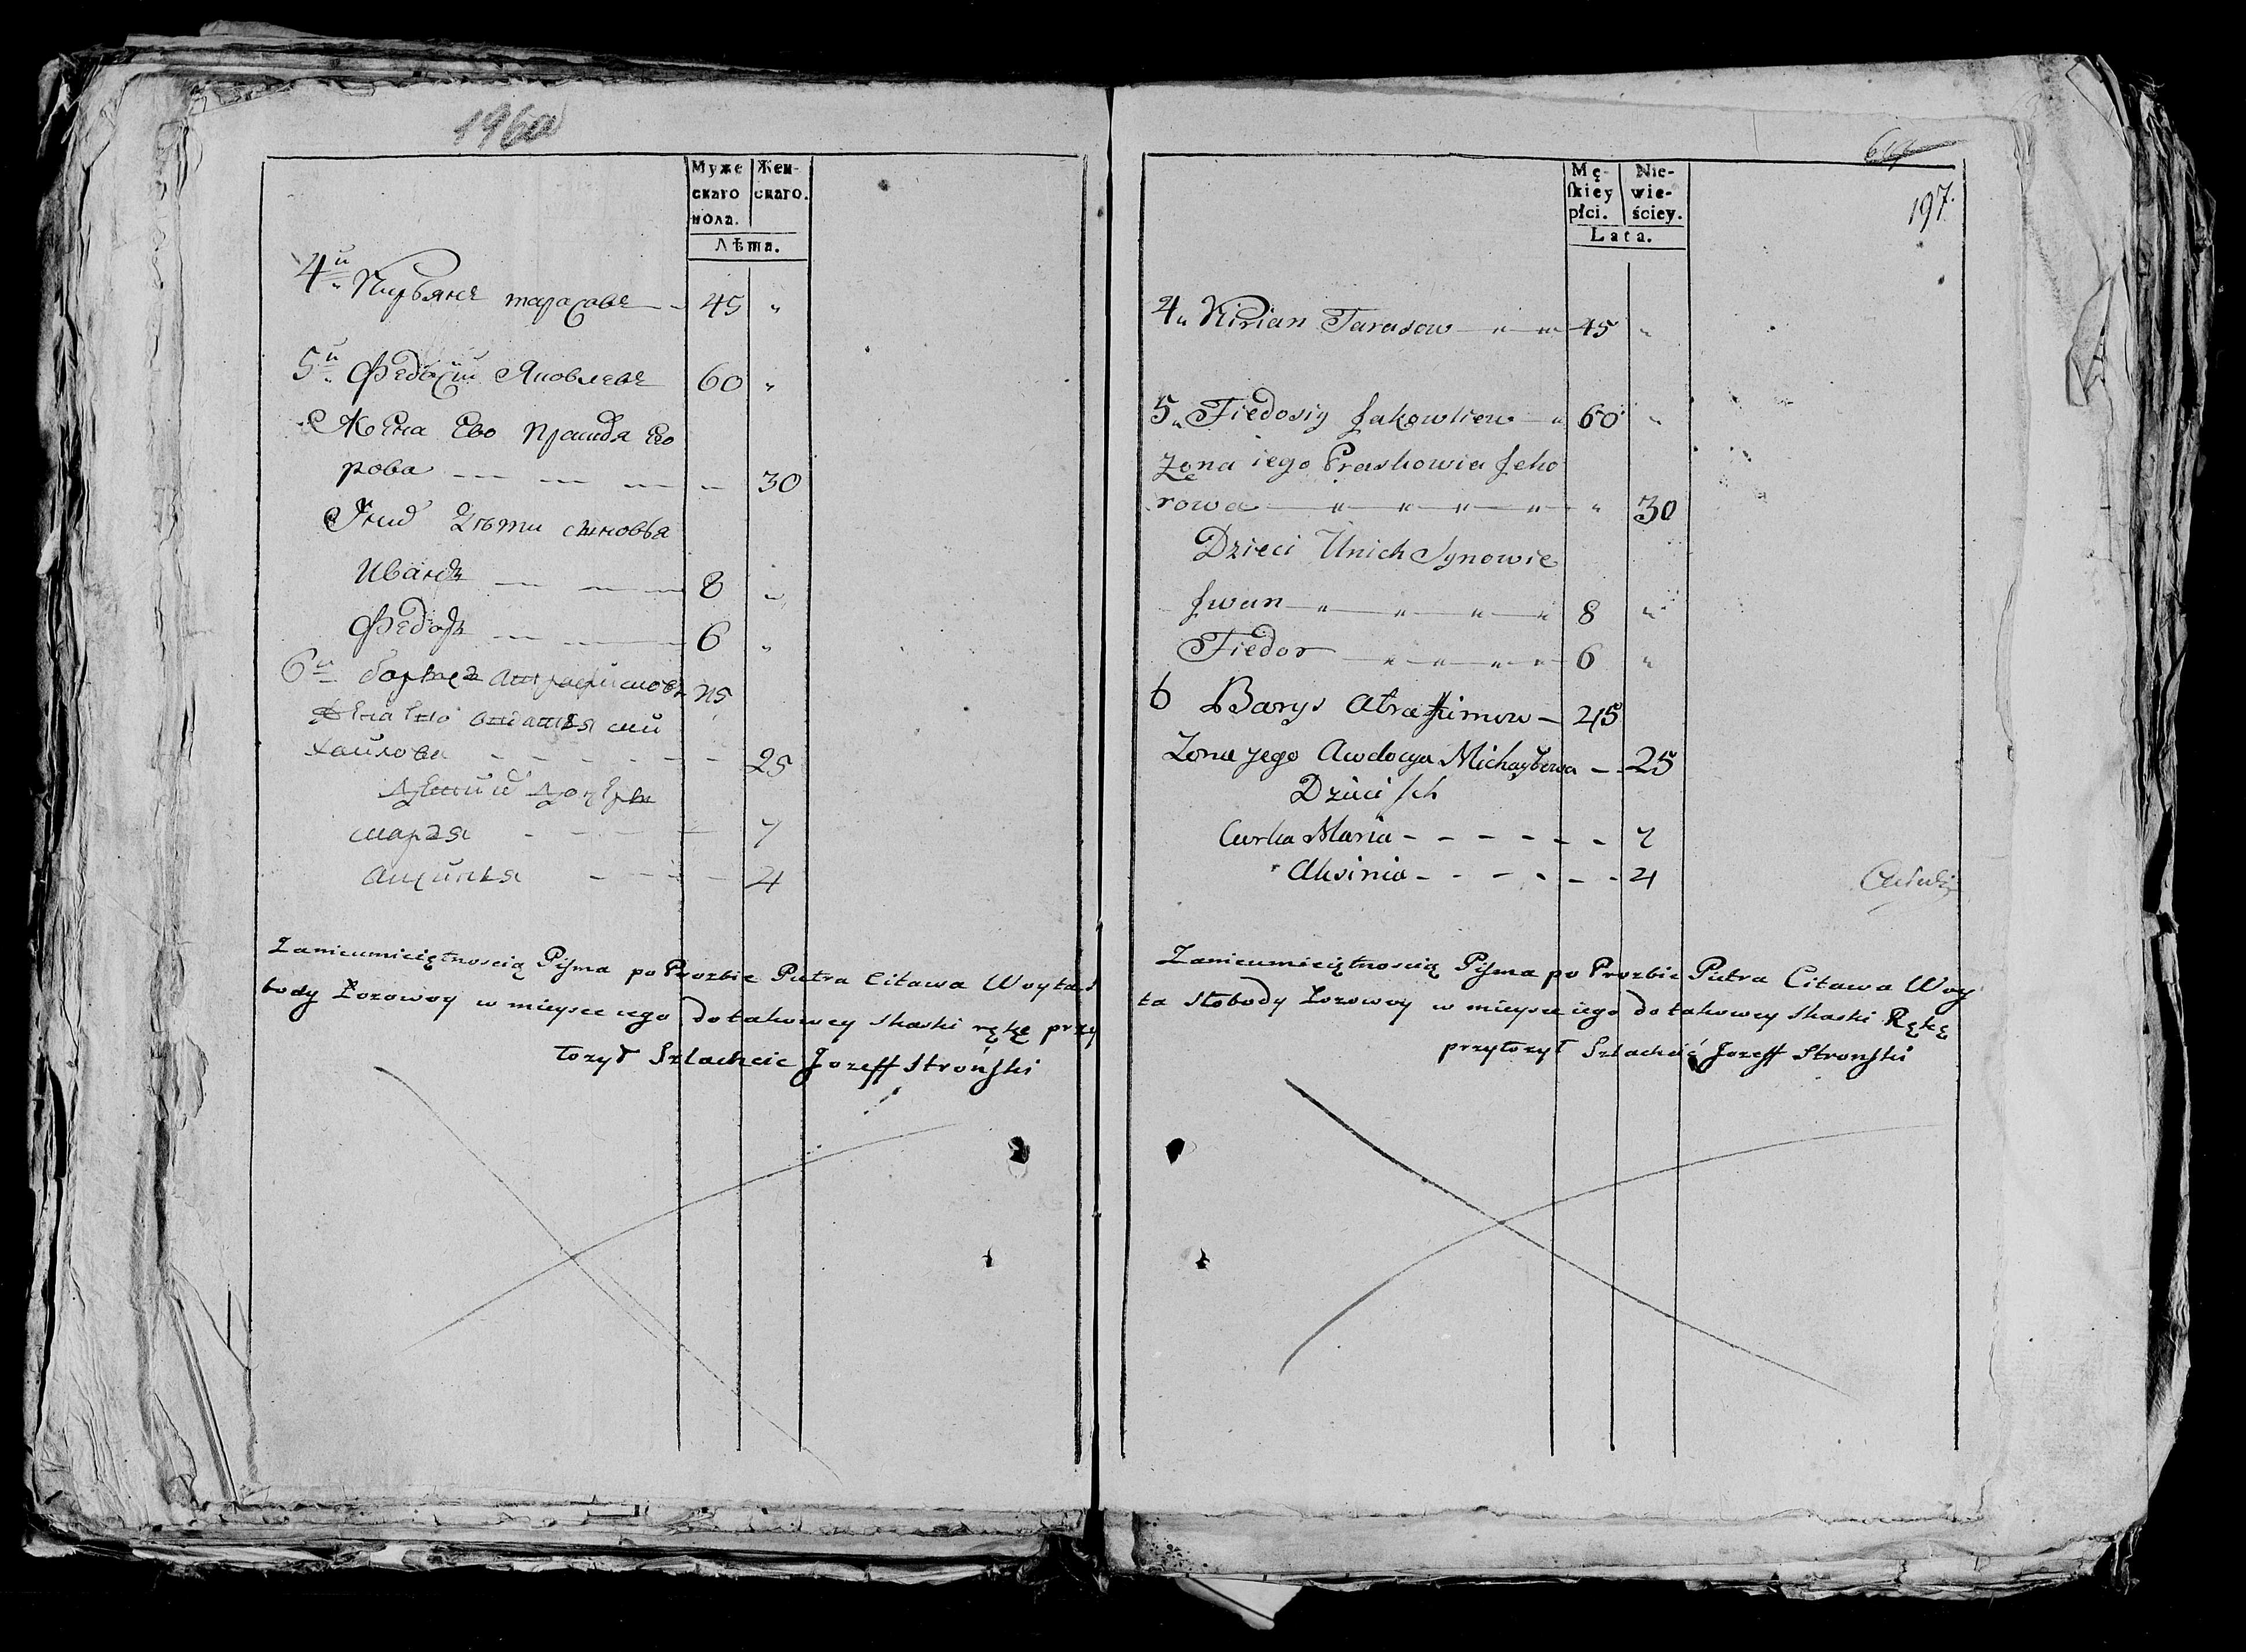 196
Муже
скаго
пола.
Жен-
скаго.
Лѣта.
4й Кирьянъ тарасовъ 45 "
5й Федосій Яковлевъ 60 "
Жена Ево Прасковя Его
рова 30
У нихъ Дѣти сыновья
Иванъ 8 "
Федоръ 6 "
6й 45
Жена Ево
хайлова 25
марья 7
аксинья 4
Zanieumieiętnoscią Pisma po Prozbie Piotra Citawa Woyta S
body Łozowoy w mieysce iego do takowey skaski rękę przy
łozył Szlachcic Jozeff Stroński
197.
Mę-
ſkiey
płci.
Nie-
wie-
ściey.
Lata.
4 Kirian Tarasow 45 "
5 Fiedosiy Jakowliew 60 "
Zona iego Praskowia Jeho
rowa " 30
Dzieci Unich Synowie
Jwan 8 "
Fiedor 6 "
6 Barys Abrafimow 45
Zona jego Awdocya Michayłowa 25
Dzieci Jch
Curka Maria 7
Aksinia 4
Zanieumieiętnoscią Pisma po Prozbie Piotra Citawa Woy
ta Słobody Łozowoy w mieysce iego do takowey skaski Rękę
przyłozył Szlachcic Jozeff Stronski